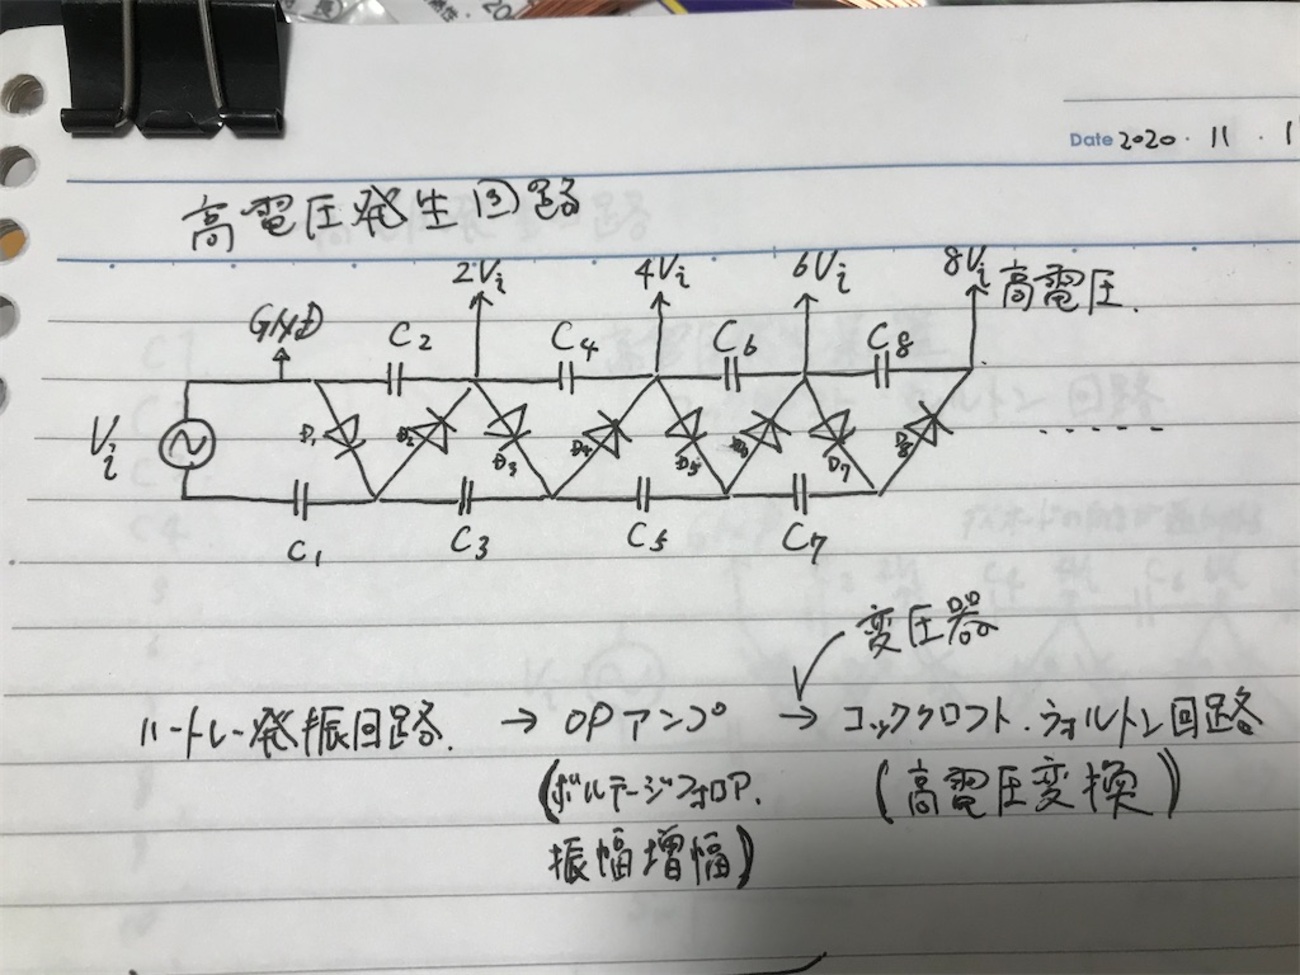 Date 2020 · 11 · 1
高電圧発生回路
2Vi 4Vi 6Vi 8Vi 高電圧.
GND C2 C4 C6 C8
Vi D1 D2 D3 D4 D5 D6 D7 D8 ......
C1 C3 C5 C7
変圧器
ハートレー発振回路. → OPアンプ → コッククロフト.ウォルトン回路
(ボルテージフォロワ. (高電圧変換)
振幅増幅)